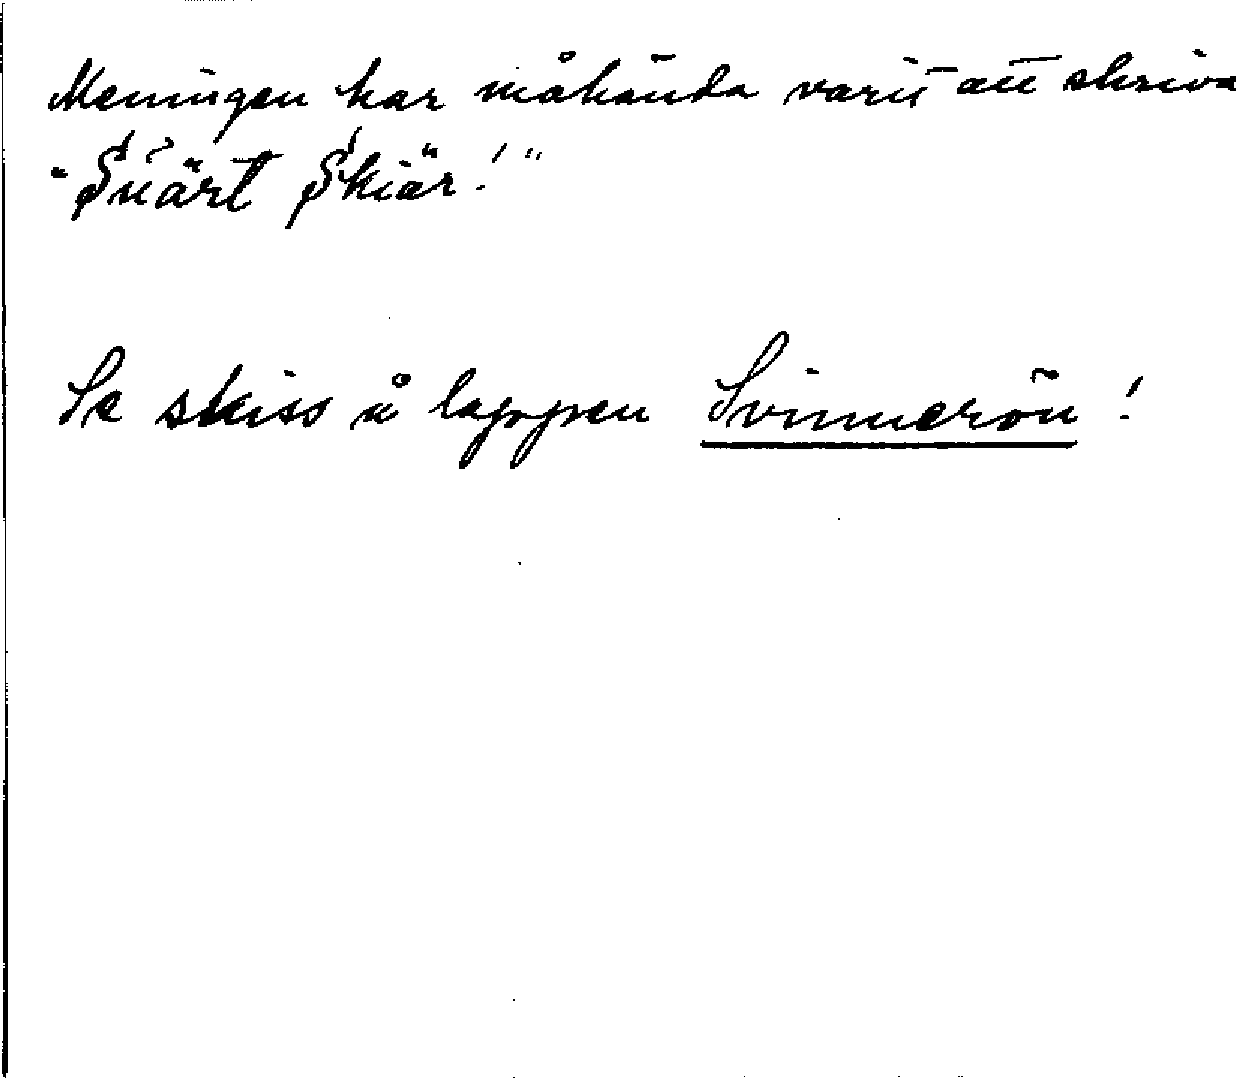 Meningen har måhända varit att skriva
"Suärt Skiär!"
Se skiss å lappen Svinnerön!